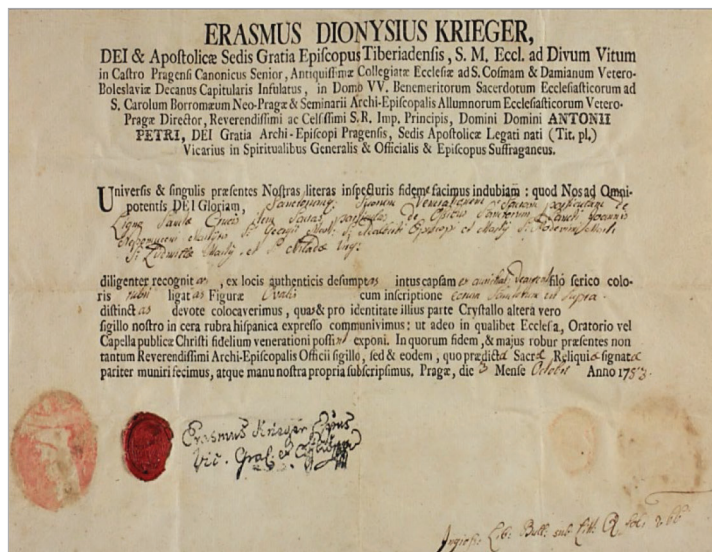 ERASMUS DIONYSIUS KRIEGER,
DEI & Apostolicæ Sedis Gratia Episcopus Tiberiadensis, S. M. Eccl. ad Divum Vitum
in Castro Pragensi Canonicus Senior, Antiquissimæ Collegiatæ Ecclesiæ ad S. Cosmam & Damianum Vetero-
Boleslaviæ Decanus Capitularis Infulatus, in Domo VV. Benemeritorum Sacerdotum Ecclesiasticorum ad
S. Carolum Borromæum Neo-Pragæ & Seminarii Archi-Episcopalis Allumnorum Ecclesiasticorum Vetero-
Pragæ Director, Reverendissimi ac Celsissimi S.R. Imp. Principis, Domini Domini ANTONII
PETRI, DEI Gratia Archi-Episcopi Pragensis, Sedis Apostolicæ Legati nati (Tit. pl.)
Vicarius in Spiritualibus Generalis & Officialis & Episcopus Suffraganeus.
Universis & singulis præsentes Nostras literas inspecturis fidem facimus indubiam: quod Nos ad Omni-
potentis DEI Gloriam, Sanctorumq; Suorum Venerationem particulam de
Ligno Sanctæ Crucis Item Sacras particulas de Ossibus Sanctorum Sancti Joannis
Nepomuceni Martyris S. Georgii S. Adalberti Episcopi et Martyris
S. Ludmillæ Martyris et
diligenter recognitas, ex locis authenticis desumptas intus capsam filo serico colo-
ris rubri ligatas Figuræ Ovalis cum inscriptione ut supra
distinctas devote collocaverimus, quas & pro identitate illius parte Crystallo altera vero
sigillo nostro in cera rubra hispanica expresso communivimus: ut adeo in qualibet Ecclesia, Oratorio vel
Capella publicæ Christi fidelium venerationi possint exponi. In quorum fidem, & majus robur præsentes non
tantum Reverendissimi Archi-Episcopalis Officii sigillo, sed & eodem, quo prædictæ Sacræ Reliquiæ signatæ
pariter muniri fecimus, atque manu nostra propria subscripsimus. Pragæ, die 3 Mense Octobris Anno 1783.
Erasmus Krieger Eppus
Vic. Gnal. et